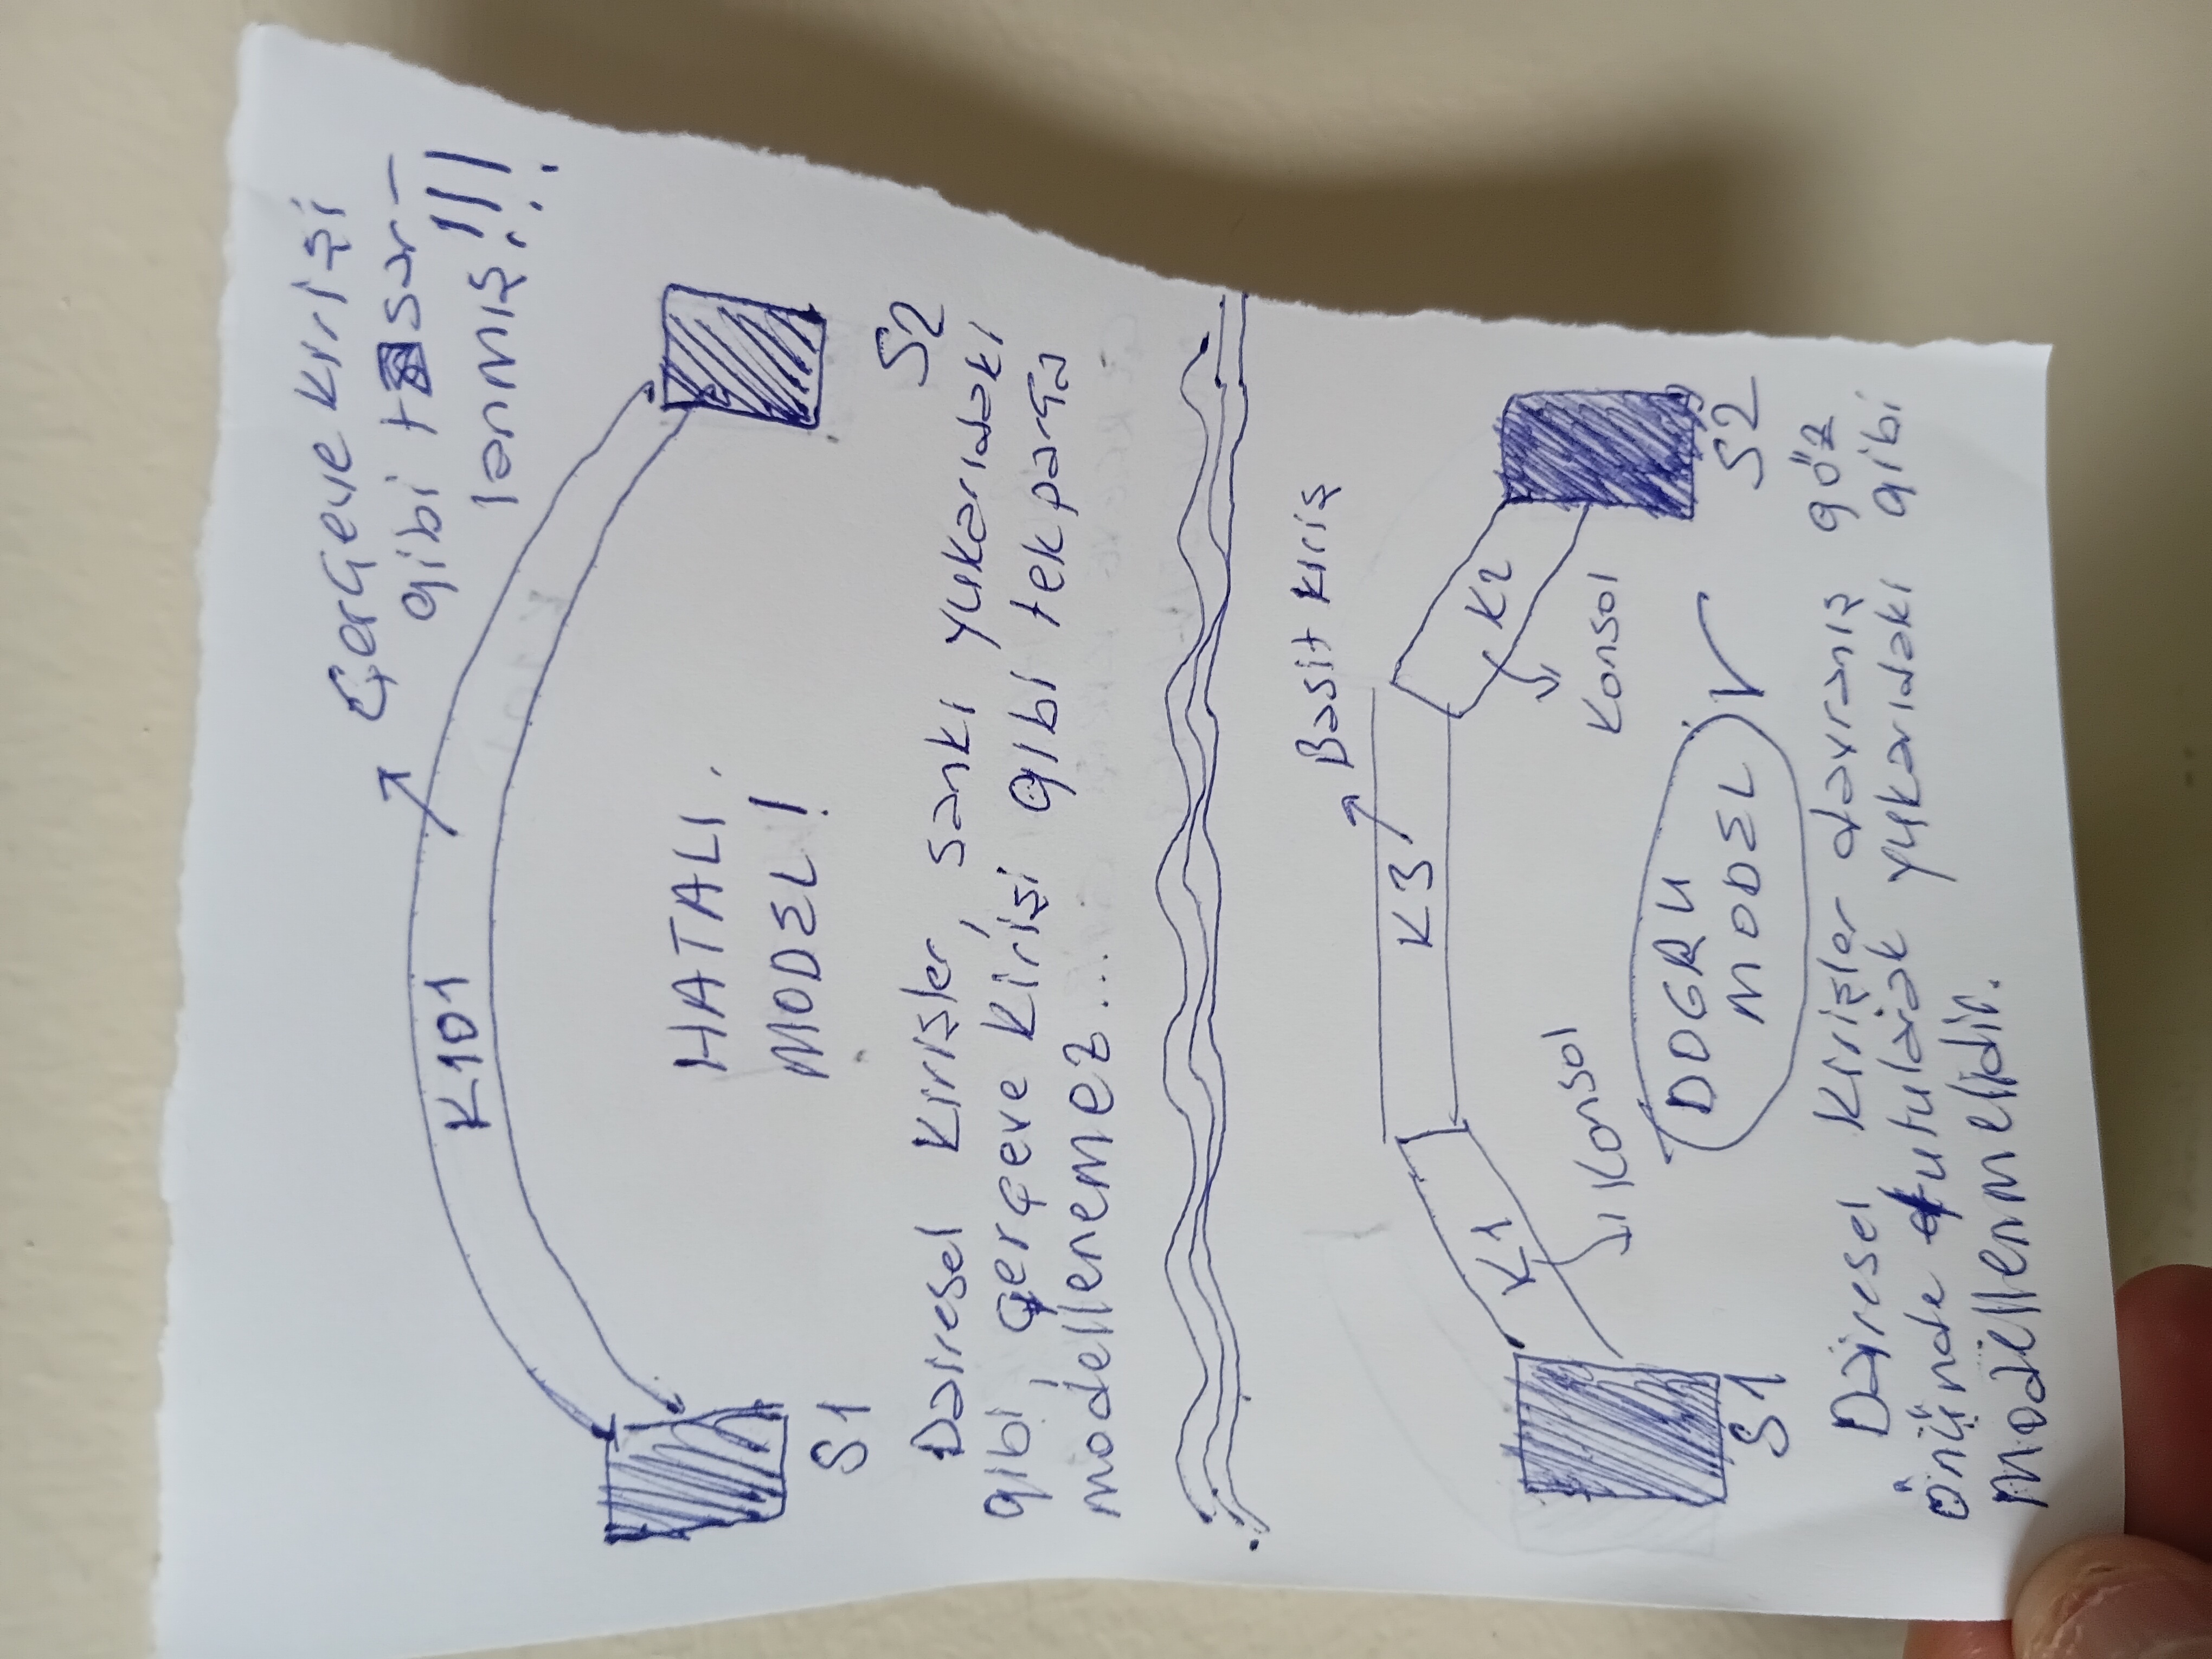 Çerçeve kirişi
gibi tasar-
lanmış!!!
K101
S1
S2
HATALI
MODEL!
Dairesel kirişler, sanki yukarıdaki
gibi çerçeve kirişi gibi tek parça
modellenemez...
Basit kiriş
K1
K3
K2
Konsol
Konsol
S1
S2
DOGRU
MODEL
Dairesel kirişler davranış göz
önünde tutularak yukarıdaki gibi
modellenmelidir.